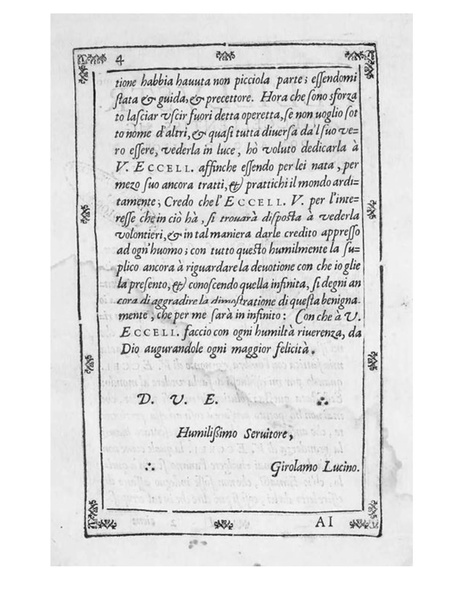 4
tione habbia hauuta non picciola parte; essendomi
stata & guida, & precettore. Hora che sono sforza
to lasciar vscir fuori detta operetta, se non uoglio sot
to nome d'altri, & quasi tutta diuersa dal suo ve-
ro essere, vederla in luce, hò voluto dedicarla à
V. ECCELL. affinche essendo per lei nata, per
mezo suo ancora tratti, & prattichi il mondo ardi-
tamente; Credo che l'ECCELL. V. per l'inte-
resse che in ciò hà, si trouarà disposta à vederla
volontieri, & in tal maniera darle credito appresso
ad ogn'huomo; con tutto questo humilmente la su-
plico ancora à riguardare la deuotione con che io glie
la presento, & conoscendo quella infinita, si degni an
cora di aggradire la dimostratione di questa benigna
mente, che per me sarà in infinito: Con che à V.
ECCELL. faccio con ogni humiltà riuerenza, da
Dio augurandole ogni maggior felicità.
D. V. E.
Humilissimo Seruitore,
Girolamo Lucino.
AI